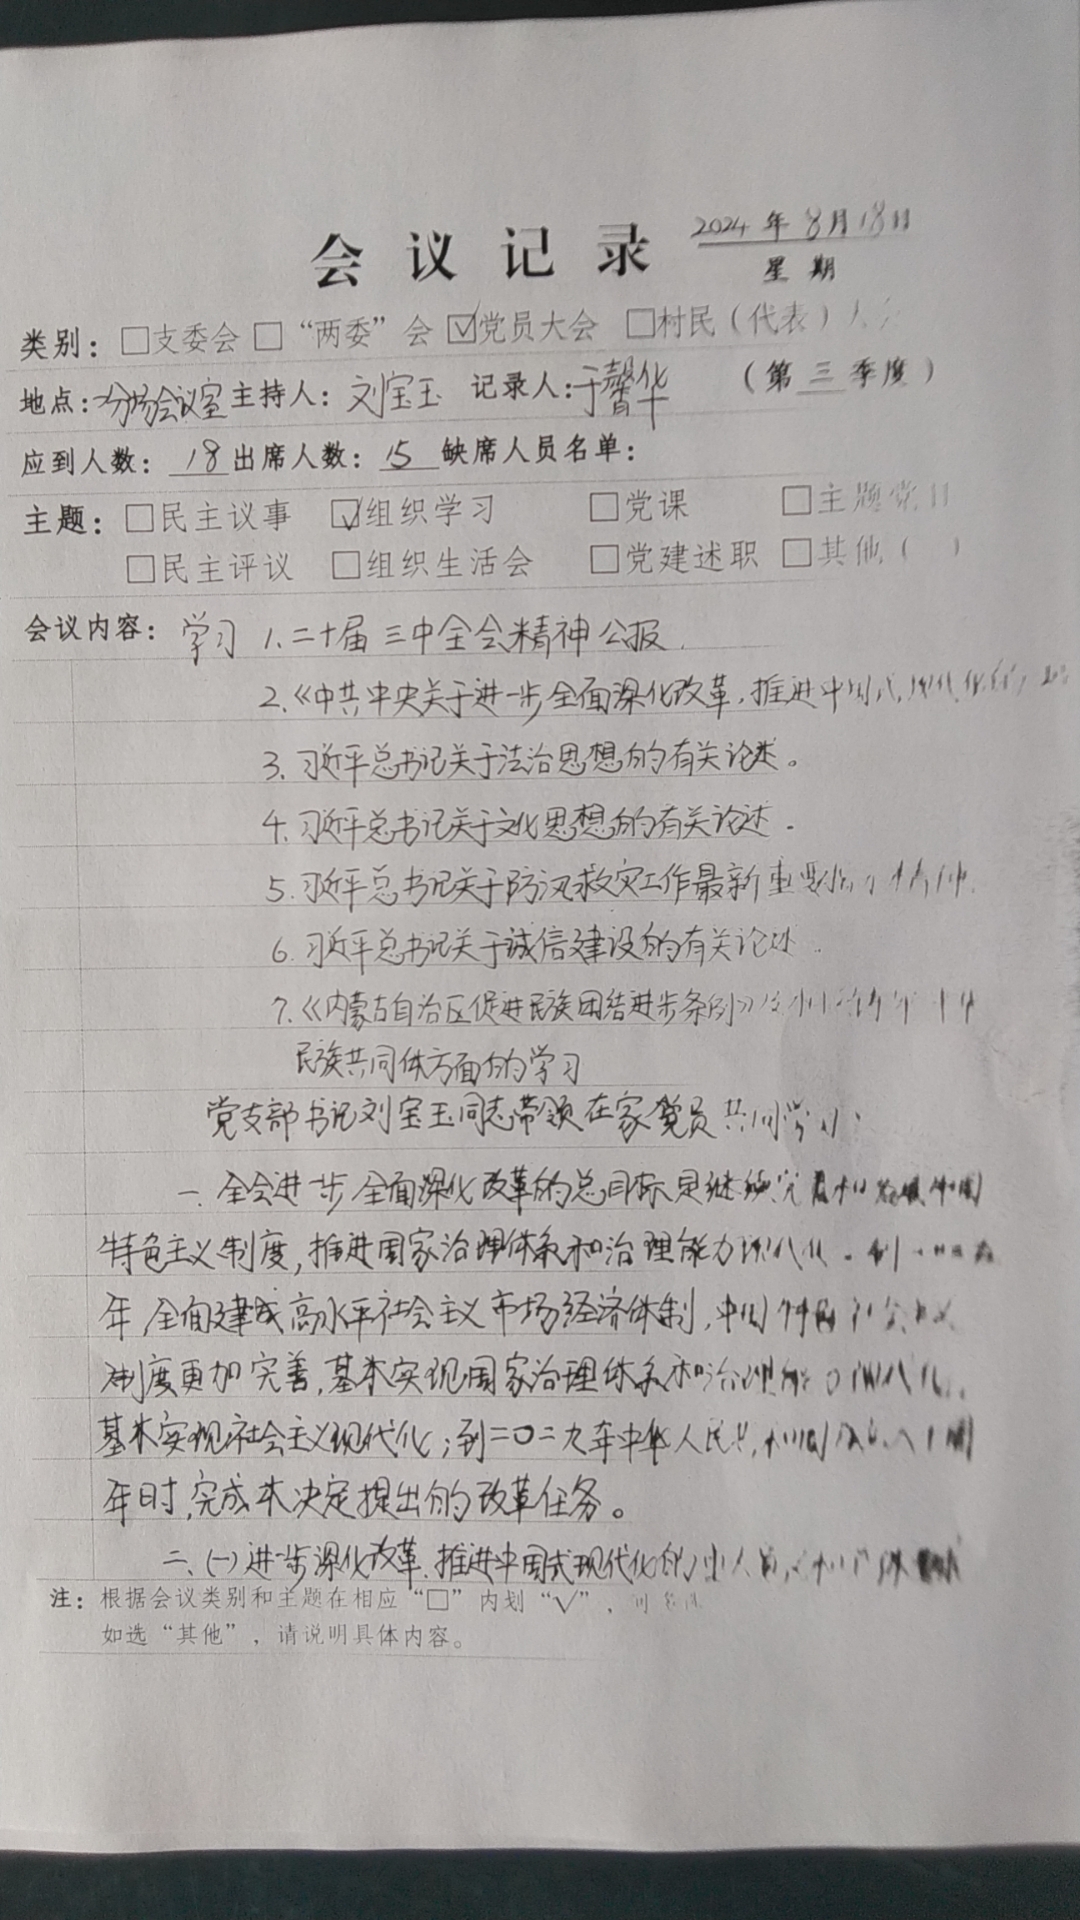 会议记录 2024年8月18日
星期
类别：□支委会 □“两委”会 ☑党员大会 □村民（代表）
地点：分场会议室 主持人：刘宝玉 记录人：于馨华 （第三季度）
应到人数：18 出席人数：15 缺席人员名单：
主题：□民主议事 ☑组织学习 □党课 □主题党日
□民主评议 □组织生活会 □党建述职 □其他（ ）
会议内容：学习 1.二十届三中全会精神公报.
2.《中共中央关于进一步全面深化改革.推进中国式现代化的
3.习近平总书记关于法治思想的有关论述。
4.习近平总书记关于文化思想的有关论述.
5.习近平总书记关于防汛救灾工作最新重要指示精神.
6.习近平总书记关于诚信建设的有关论述.
7.《内蒙古自治区促进民族团结进步条例》
民族共同体方面的学习
党支部书记刘宝玉同志带领在家党员共同学习：
一.全会进一步全面深化改革的总目标是继续完善和发展中国
特色主义制度,推进国家治理体系和治理能力现代化.到
年,全面建成高水平社会主义市场经济体制,中国特色社会主义
制度更加完善,基本实现国家治理体系和治理能力现代化.
基本实现社会主义现代化;到二〇二九年中华人民共和国
年时,完成本决定提出的改革任务。
二、(一)进一步深化改革.推进中国式现代化的
注：根据会议类别和主题在相应“□”内划“√”，
如选“其他”，请说明具体内容。